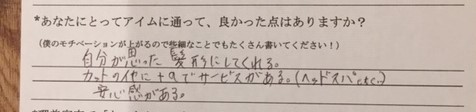 *あなたにとってアイムに通って、良かった点はありますか？
(僕のモチベーションが上がるので些細なことでもたくさん書いてください！)
自分が思った髪形にしてくれる。
カットの他に+αでサービスがある。(ヘッドスパ,etc.)
安心感がある。